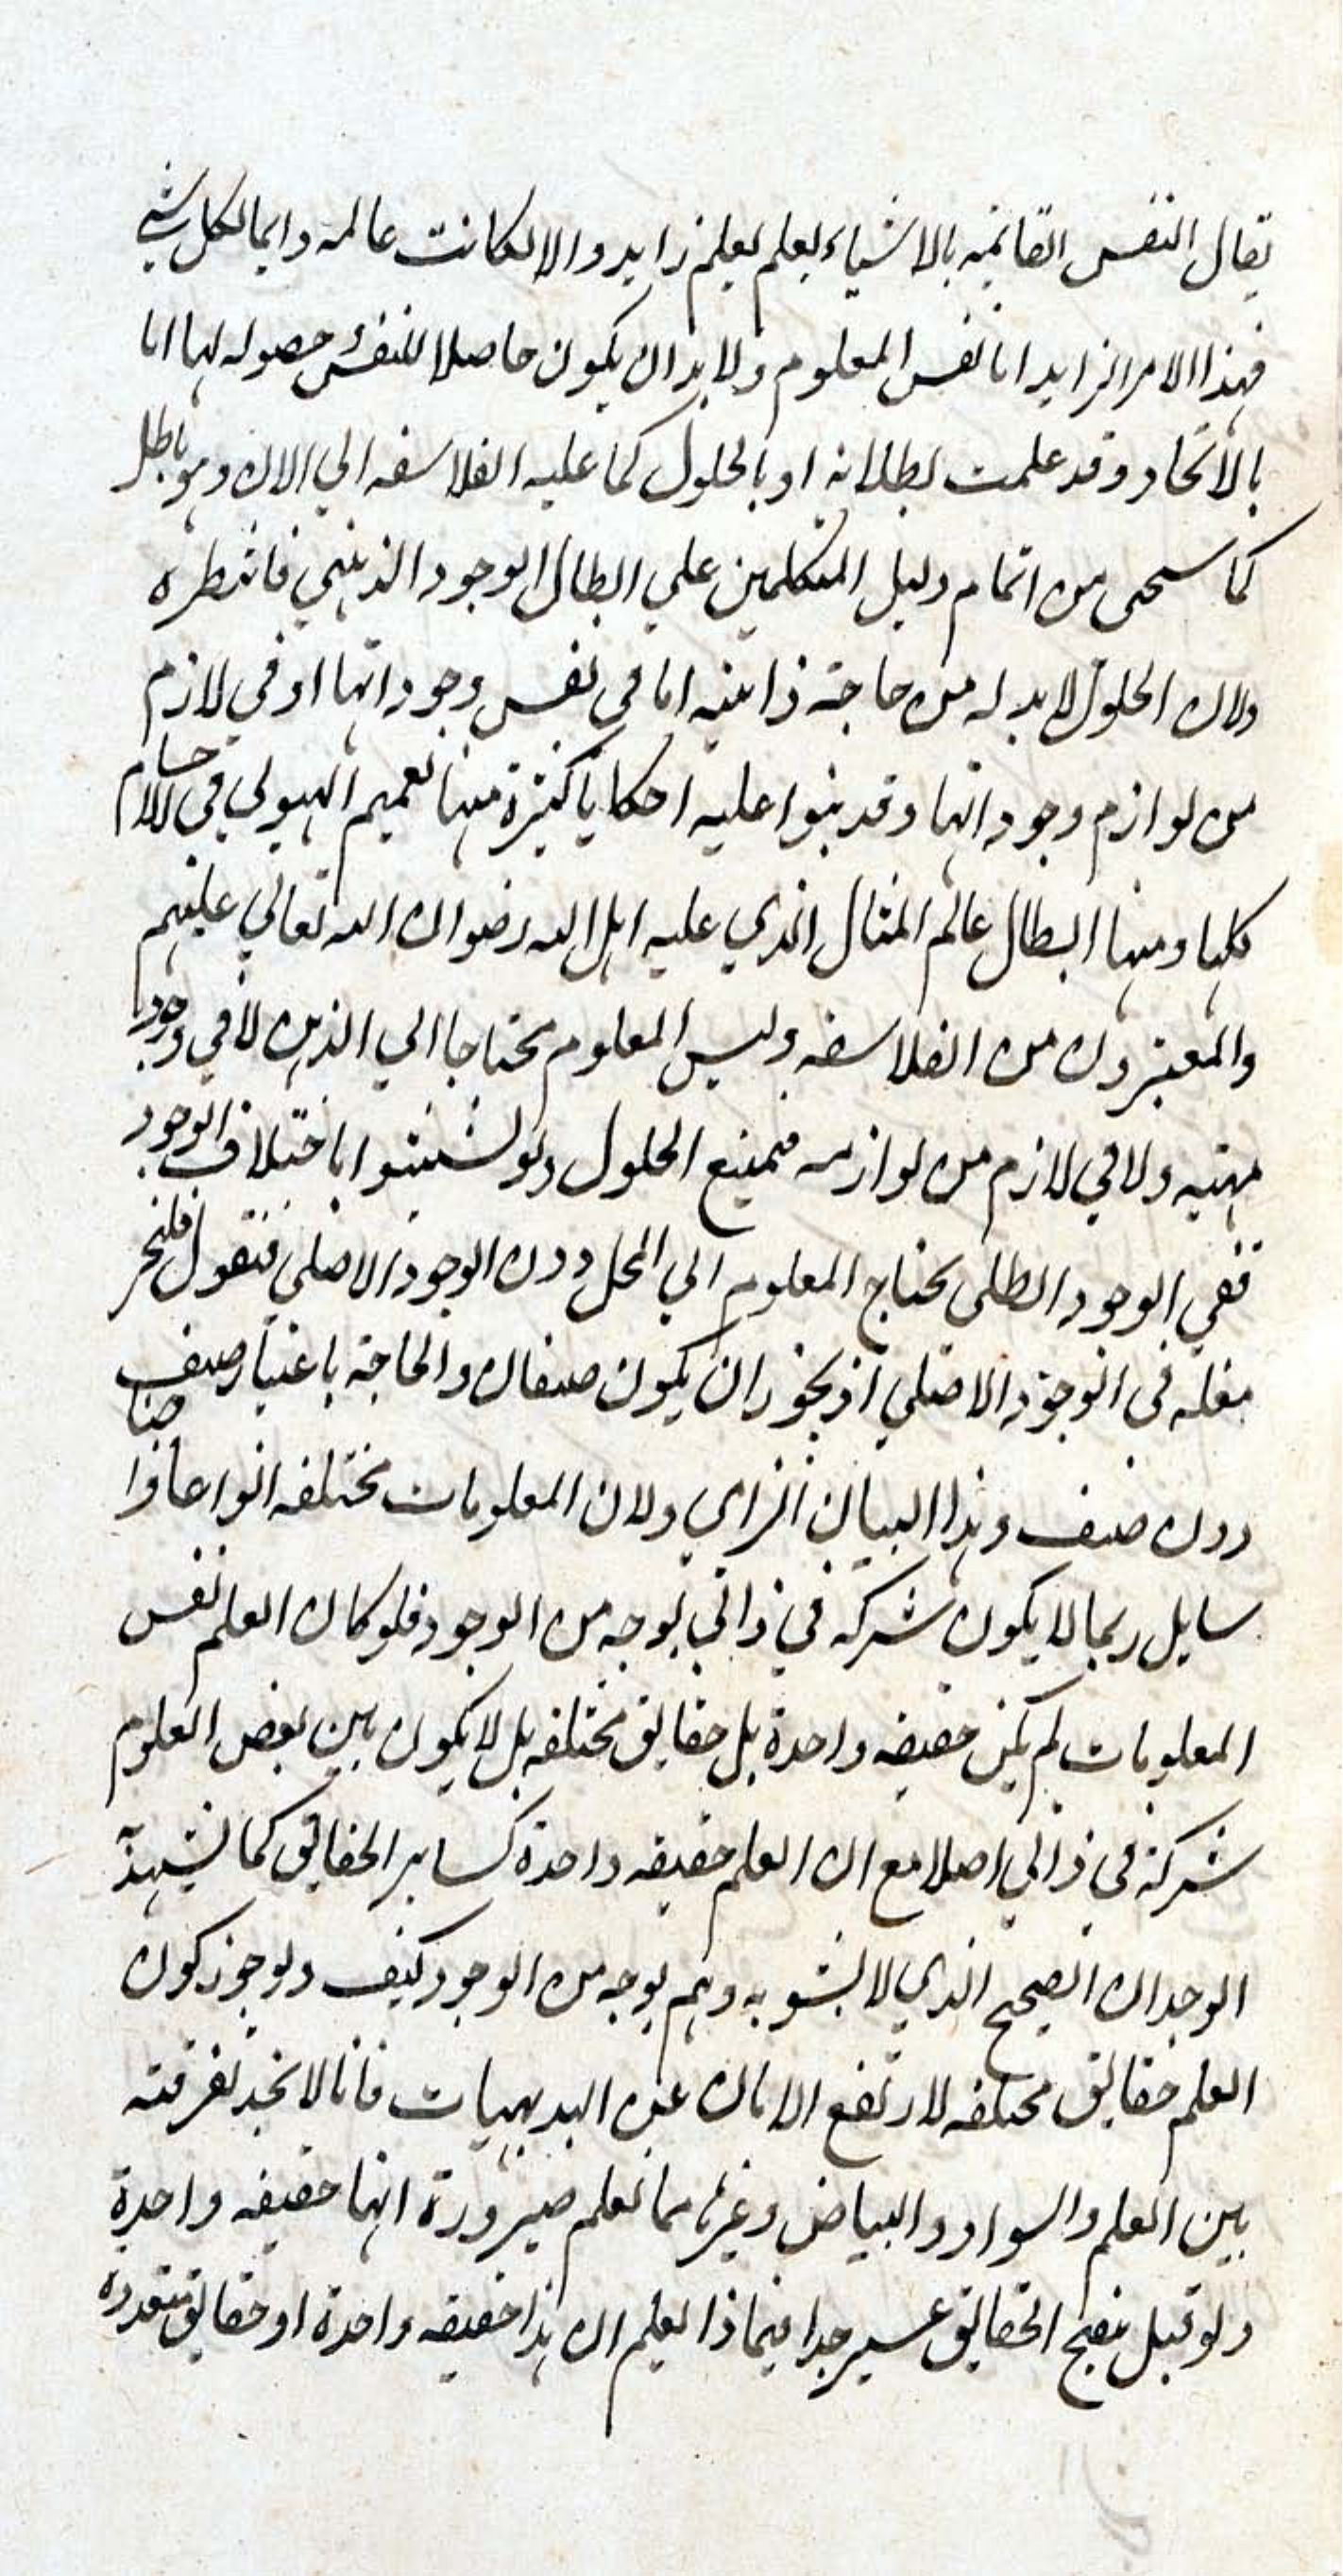 يقال النفس القائمة بالاشياء بعلم بعلم زايد والا لكانت عالمه دايما لكل شي
فهذا الامر الزايد اما نفس المعلوم ولا بد ان يكون حاصلا للنفس حصوله لها اما
بالاتحاد وقد علمت بطلانه او بالحلول كما عليه الفلاسفه الي الان وهو باطل
كما سيجى من اتمام دليل المتكلمين علي ابطال الوجود الذهني فانتظره
ولان الحلول لا بد له من حاجة ذاتيه اما في نفس وجوداتها او في لازم
من لوازم وجوداتها وقد بنوا عليه احكاما كثيرة منها تعميم الهيولي في الاجسام
كلها ومنها ابطال عالم المثال الذي عليه اهل الله رضوان الله تعالي عليهم
والمعتبرون من الفلاسفه وليس المعلوم محتاجا الي الذهن لا في وجود
مهيته ولا في لازم من لوازمه فيمتنع الحلول ولو تشبثوا باختلاف الوجود
ففي الوجود الظلى يحتاج المعلوم الي المحل دون الوجود الاصلي فنقول فليجر
مثله في الوجود الاصلي اذ يجوز ان يكون صنفان والحاجة باعتبار صنف
دون صنف وهذا البيان الزامي ولان المعلومات مختلفه انواعا واجناسا
سايل ربما لا يكون شركه في ذاتي بوجه من الوجوه فلو كان العلم نفس
المعلومات لم يكن حقيقه واحدة بل حقايق مختلفه بل لا يكون بين بعض العلوم
شركة في ذاتي اصلا مع ان العلم حقيقه واحدة كساير الحقايق كما يشهد به
الوجدان الصحيح الذي لا يشوبه وهم بوجه من الوجوه كيف ولو جوز كون
العلم حقايق مختلفه لارتفع الامان عن البديهيات فانا لا نجد تفرقته
بين العلم والسواد والبياض وغيرها مما نعلم ضرورة انها حقيقه واحدة
ولو قيل تنقيح الحقايق عسير جدا فبماذا يعلم ان هذا حقيقه واحدة او حقايق متعدده